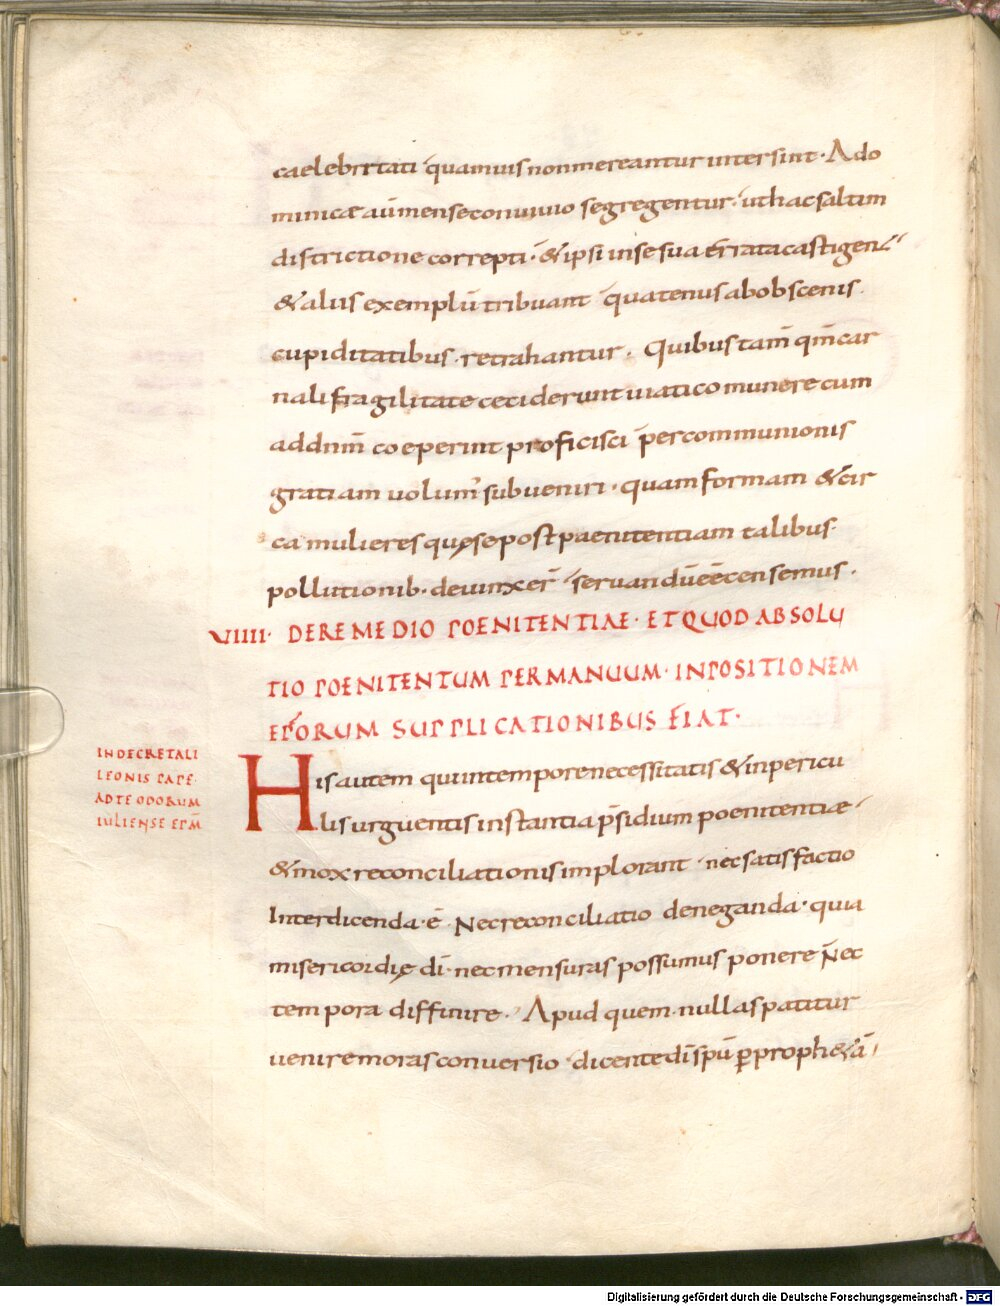 caelebritati quamuis nonmereantur intersint · Ado
minicæ aūmenseconuiuio segregentur · uthacsaltim
districtione correpti · &ipsi insesua errata castigen
&aliis exemplū tribuant quatenus abobscenis
cupiditatibus · retrahantur . Quibus tam̄ qm̄car
nali fragilitate ceciderunt uiatico munere cum
addnm̄ coeperint proficisci percommunionis
gratiam uolum̄ subueniri · quam formam &cir
ca mulieres quę se post paenitentiam talibus
pollutionib · deuinxer̄ seruandūeēcensemus .
VIIII · DEREMEDIO POENITENTIAE · ETQUOD ABSOLU
TIO POENITENTUM PERMANUUM · INPOSITIONEM
EP̄ORUM SUPPLICATIONIBUS FIAT ·
INDECRETALI
LEONIS PAPE ·
ADTEODORUM
IULIENSE EPM̄
His autem quiintemporenecessitatis &inpericu
lis urguentis instantia p̄sidium poenitentiae
&mox reconciliationis implorant · nec satisfactio
Interdicenda · ē Necreconciliatio deneganda · quia
misericordię dī · nec mensuras possumus ponere Nec
tempora diffinire · Apud quem · nullas patitur
uenire moras conuersio dicente dīspū p prophe&ā
Digitalisierung gefördert durch die Deutsche Forschungsgemeinschaft - DFG